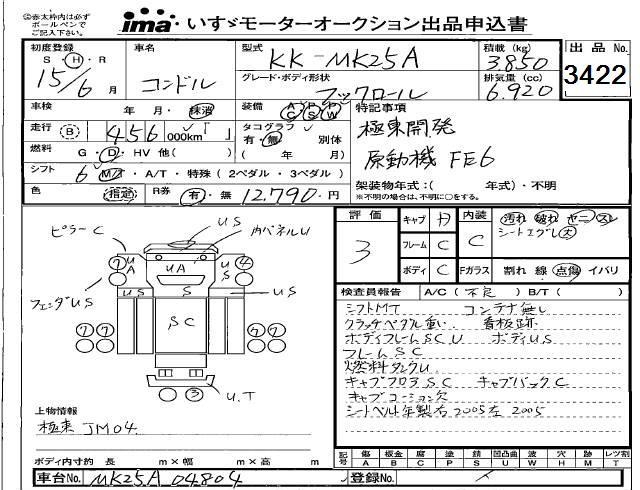 ②赤太枠内は必ず
ボールペンで
ご記入下さい。
ima いすゞモーターオークション出品申込書
初度登録 車名 型式 KK-MK25A 積載 (kg) 3.850 出品 No. 3422
S・H・R 15/6 月 コンドル グレード・ボディ形状 フックロール 排気量 (cc) 6.920
車検 年 月・抹消 装備 AC PS PW 特記事項
走行 B 456 000km 「 」 タコグラフ 有・無 別体 極東開発
燃料 G・D・HV 他( ) ( 年 月) 原動機 FE6
シフト 6 M/T・A/T・特殊 (2ペダル・3ペダル) 架装物年式:( 年式)・不明
色 指定 R券 有・無 12.790.円 ※不明の場合は、不明に○をする。
評価 3 キャブ フレーム C ボディ C 内装 C Fガラス
汚れ 破れ ヤニ スレ
シートエグレ大
割れ 線 点傷 イバリ
ピラーC US 内パネルU
7 UA UA U 4
フェンダUS US S US
SC
7 7 7 7
3 U.T
検査員報告 A/C (不良) B/T ( )
シフトMT コンテナ無し
クラッチペダル重い 看板跡
ボディフレームSCU ボディUS
フレームSC
燃料タンクU
キャブフロアSC キャブバックC
キャブコーション欠
シートベルト年製右2005左2005
上物情報
極東 JM04.
ボディ内寸約 長 m×幅 m×高 m
記号 傷 A 板金 B 腐 C 塗 P 錆 S 凹凸曲 U 波 W 穴 H 跡 M レツ割 T
車台No. MK25A 04804 登録No.